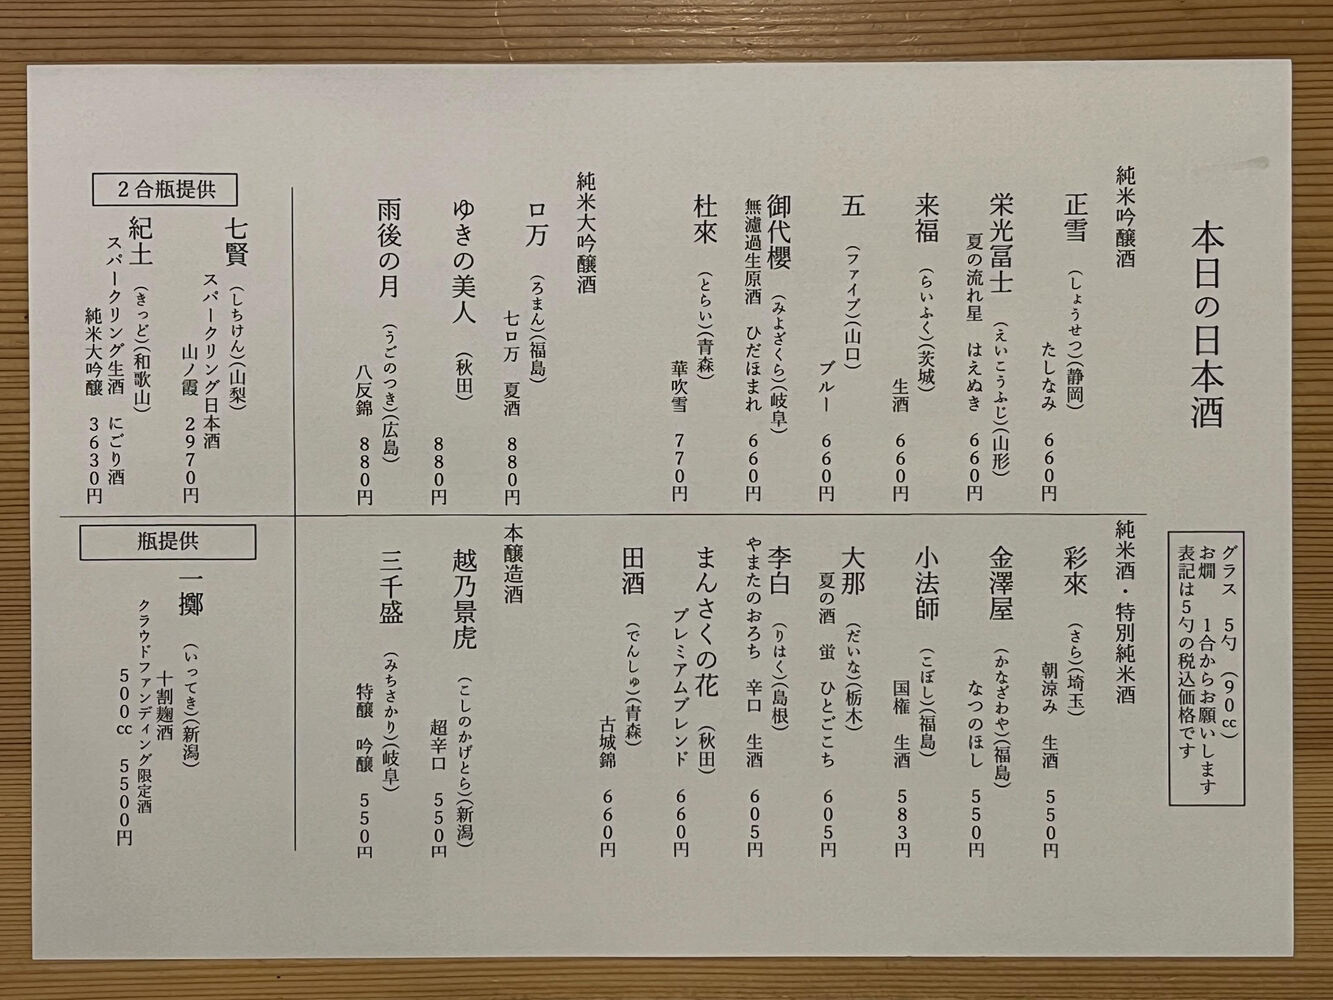 本日の日本酒
グラス　5勺　(90㏄)
お燗　1合からお願いします
表記は5勺の税込価格です
純米吟醸酒
正雪　(しょうせつ)(静岡)
たしなみ　660円
栄光冨士　(えいこうふじ)(山形)
夏の流れ星　はえぬき　660円
来福　(らいふく)(茨城)
生酒　660円
五　(ファイブ)(山口)
ブルー　660円
御代櫻　(みよざくら)(岐阜)
無濾過生原酒　ひだほまれ　660円
杜來　(とらい)(青森)
華吹雪　770円
純米大吟醸酒
ロ万　(ろまん)(福島)
七ロ万　夏酒　880円
ゆきの美人　(秋田)
880円
雨後の月　(うごのつき)(広島)
八反錦　880円
純米酒・特別純米酒
彩來　(さら)(埼玉)
朝涼み　生酒　550円
金澤屋　(かなざわや)(福島)
なつのほし　550円
小法師　(こぼし)(福島)
国権　生酒　583円
大那　(だいな)(栃木)
夏の酒　蛍　ひとごこち　605円
李白　(りはく)(島根)
やまたのおろち　辛口　生酒　605円
まんさくの花　(秋田)
プレミアムブレンド　660円
田酒　(でんしゅ)(青森)
古城錦　660円
本醸造酒
越乃景虎　(こしのかげとら)(新潟)
超辛口　550円
三千盛　(みちさかり)(岐阜)
特醸　吟醸　550円
2合瓶提供
七賢　(しちけん)(山梨)
スパークリング日本酒
山ノ霞　2970円
紀土　(きっど)(和歌山)
スパークリング生酒　にごり酒
純米大吟醸　3630円
瓶提供
一擲　(いってき)(新潟)
十割麹酒
クラウドファンディング限定酒
500㏄　5500円